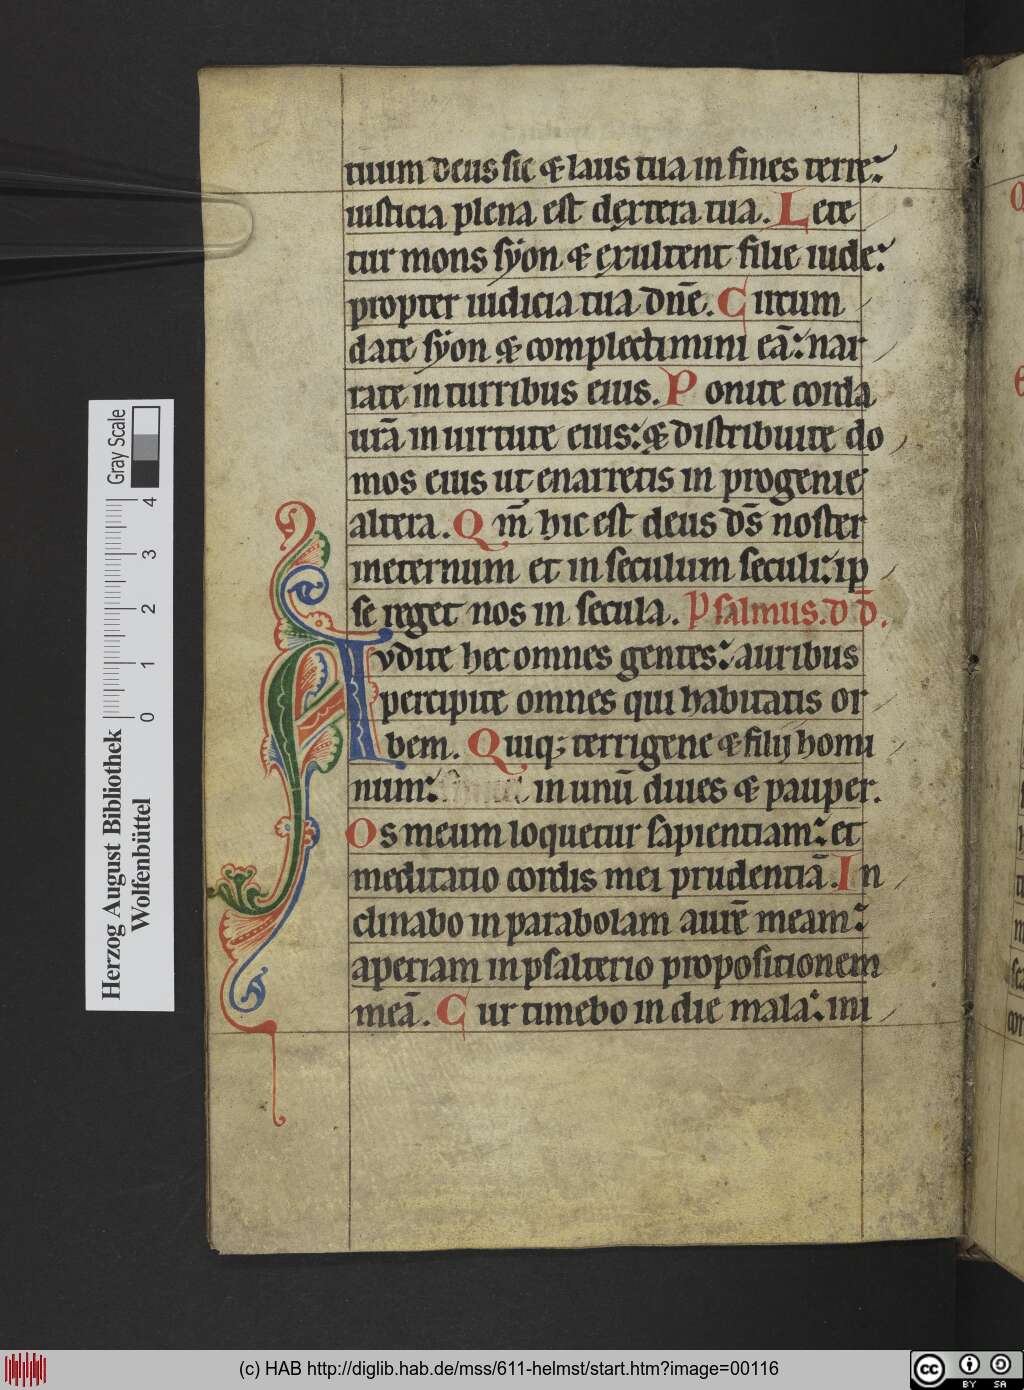 tuum deus sic & laus tua in fines terre:
iusticia plena est dextera tua. Lete
tur mons syon & exultent filie iude:
propter iudicia tua dn̄e. Circum
date syon & complectimini eā: nar
rate in turribus eius. Ponite corda
ur̄a in uirtute eius: & distribuite do
mos eius ut enarretis in progenie
altera. Qm̄ hic est deus ds̄ noster
ineternum et in seculum seculi: ip
se reget nos in secula. Psalmus. d d̄.
Avdite hec omnes gentes: auribus
percipite omnes qui habitatis or
bem. Quiq; terrigene & filij homi
num: in unū diues & pauper.
Os meum loquetur sapientiam: et
meditatio cordis mei prudentiā. In
clinabo in parabolam aurē meam:
aperiam in psalterio propositionem
meā. Cur timebo in die mala: ini
Herzog August Bibliothek
Wolfenbüttel
Gray Scale
0 1 2 3 4
(c) HAB http://diglib.hab.de/mss/611-helmst/start.htm?image=00116
cc BY SA